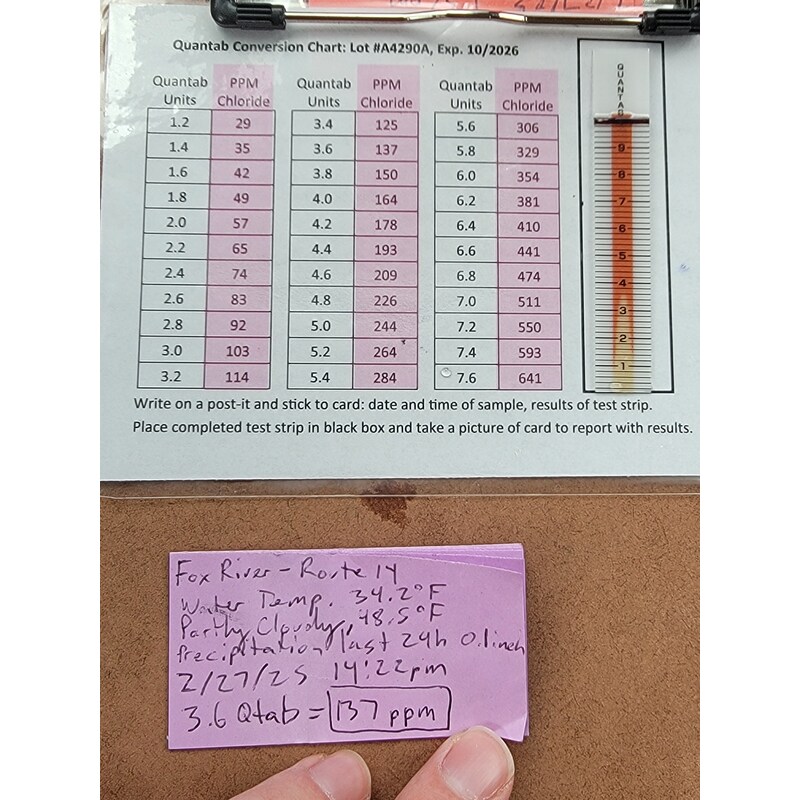 Quantab Conversion Chart: Lot #A4290A, Exp. 10/2026
Quantab Units PPM Chloride Quantab Units PPM Chloride Quantab Units PPM Chloride
1.2 29 3.4 125 5.6 306
1.4 35 3.6 137 5.8 329
1.6 42 3.8 150 6.0 354
1.8 49 4.0 164 6.2 381
2.0 57 4.2 178 6.4 410
2.2 65 4.4 193 6.6 441
2.4 74 4.6 209 6.8 474
2.6 83 4.8 226 7.0 511
2.8 92 5.0 244 7.2 550
3.0 103 5.2 264 7.4 593
3.2 114 5.4 284 7.6 641
QUANTAB
9
8
7
6
5
4
3
2
1
Write on a post-it and stick to card: date and time of sample, results of test strip.
Place completed test strip in black box and take a picture of card to report with results.
Fox River - Route 14
Water Temp. 34.2°F
Partly Cloudy, 48.5°F
Precipitation last 24h 0.1inch
2/27/25 14:22pm
3.6 Qtab = 137 ppm